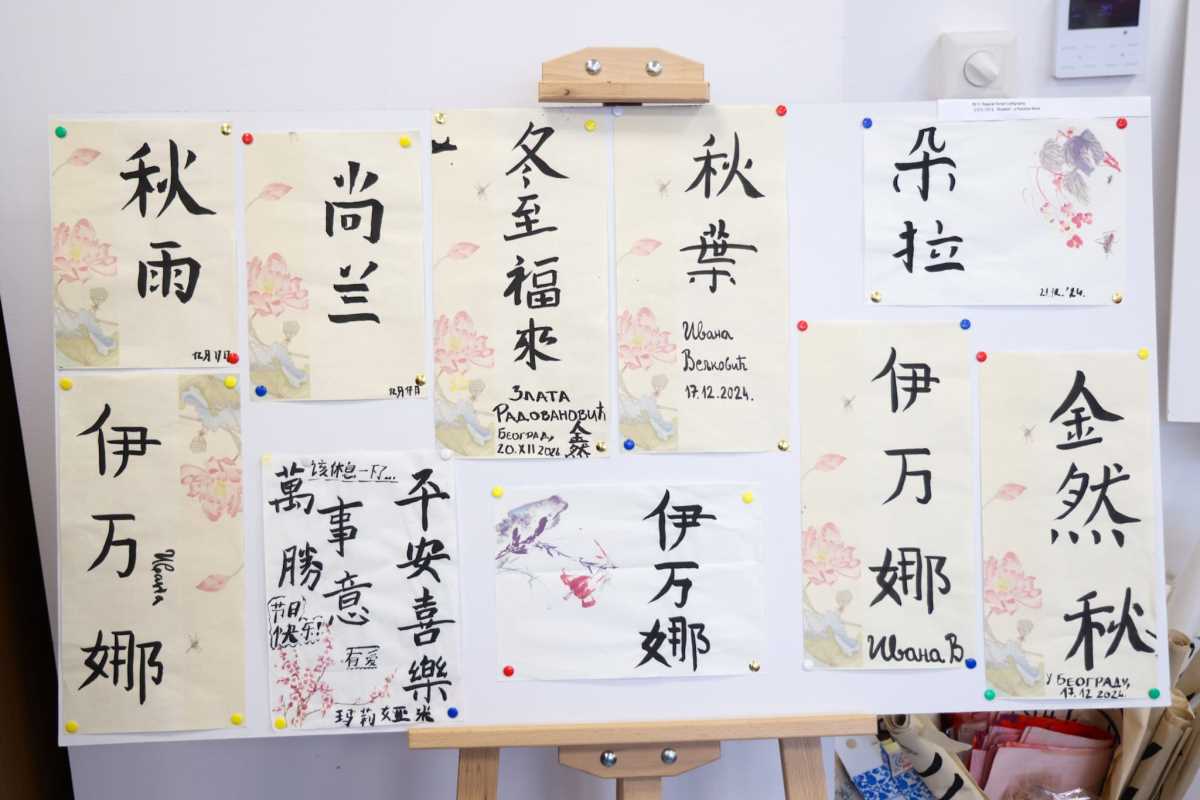 秋雨
12月17日
尚兰
12月17日
冬至福來
ЗЛАТА
РАДОВАНОВИЋ
БЕОГРАД,
20.XII 2024
金然
秋葉
Ивана
Вељковић
17.12.2024.
朵拉
21.12.'24.
伊万娜
Ивана
该休息一下了...
平安喜樂
萬事勝意
节日
快乐!
有爱
玛莉娅米
伊万娜
伊万娜
Ивана В.
金然秋
У БЕОГРАДУ,
17.12 2024.